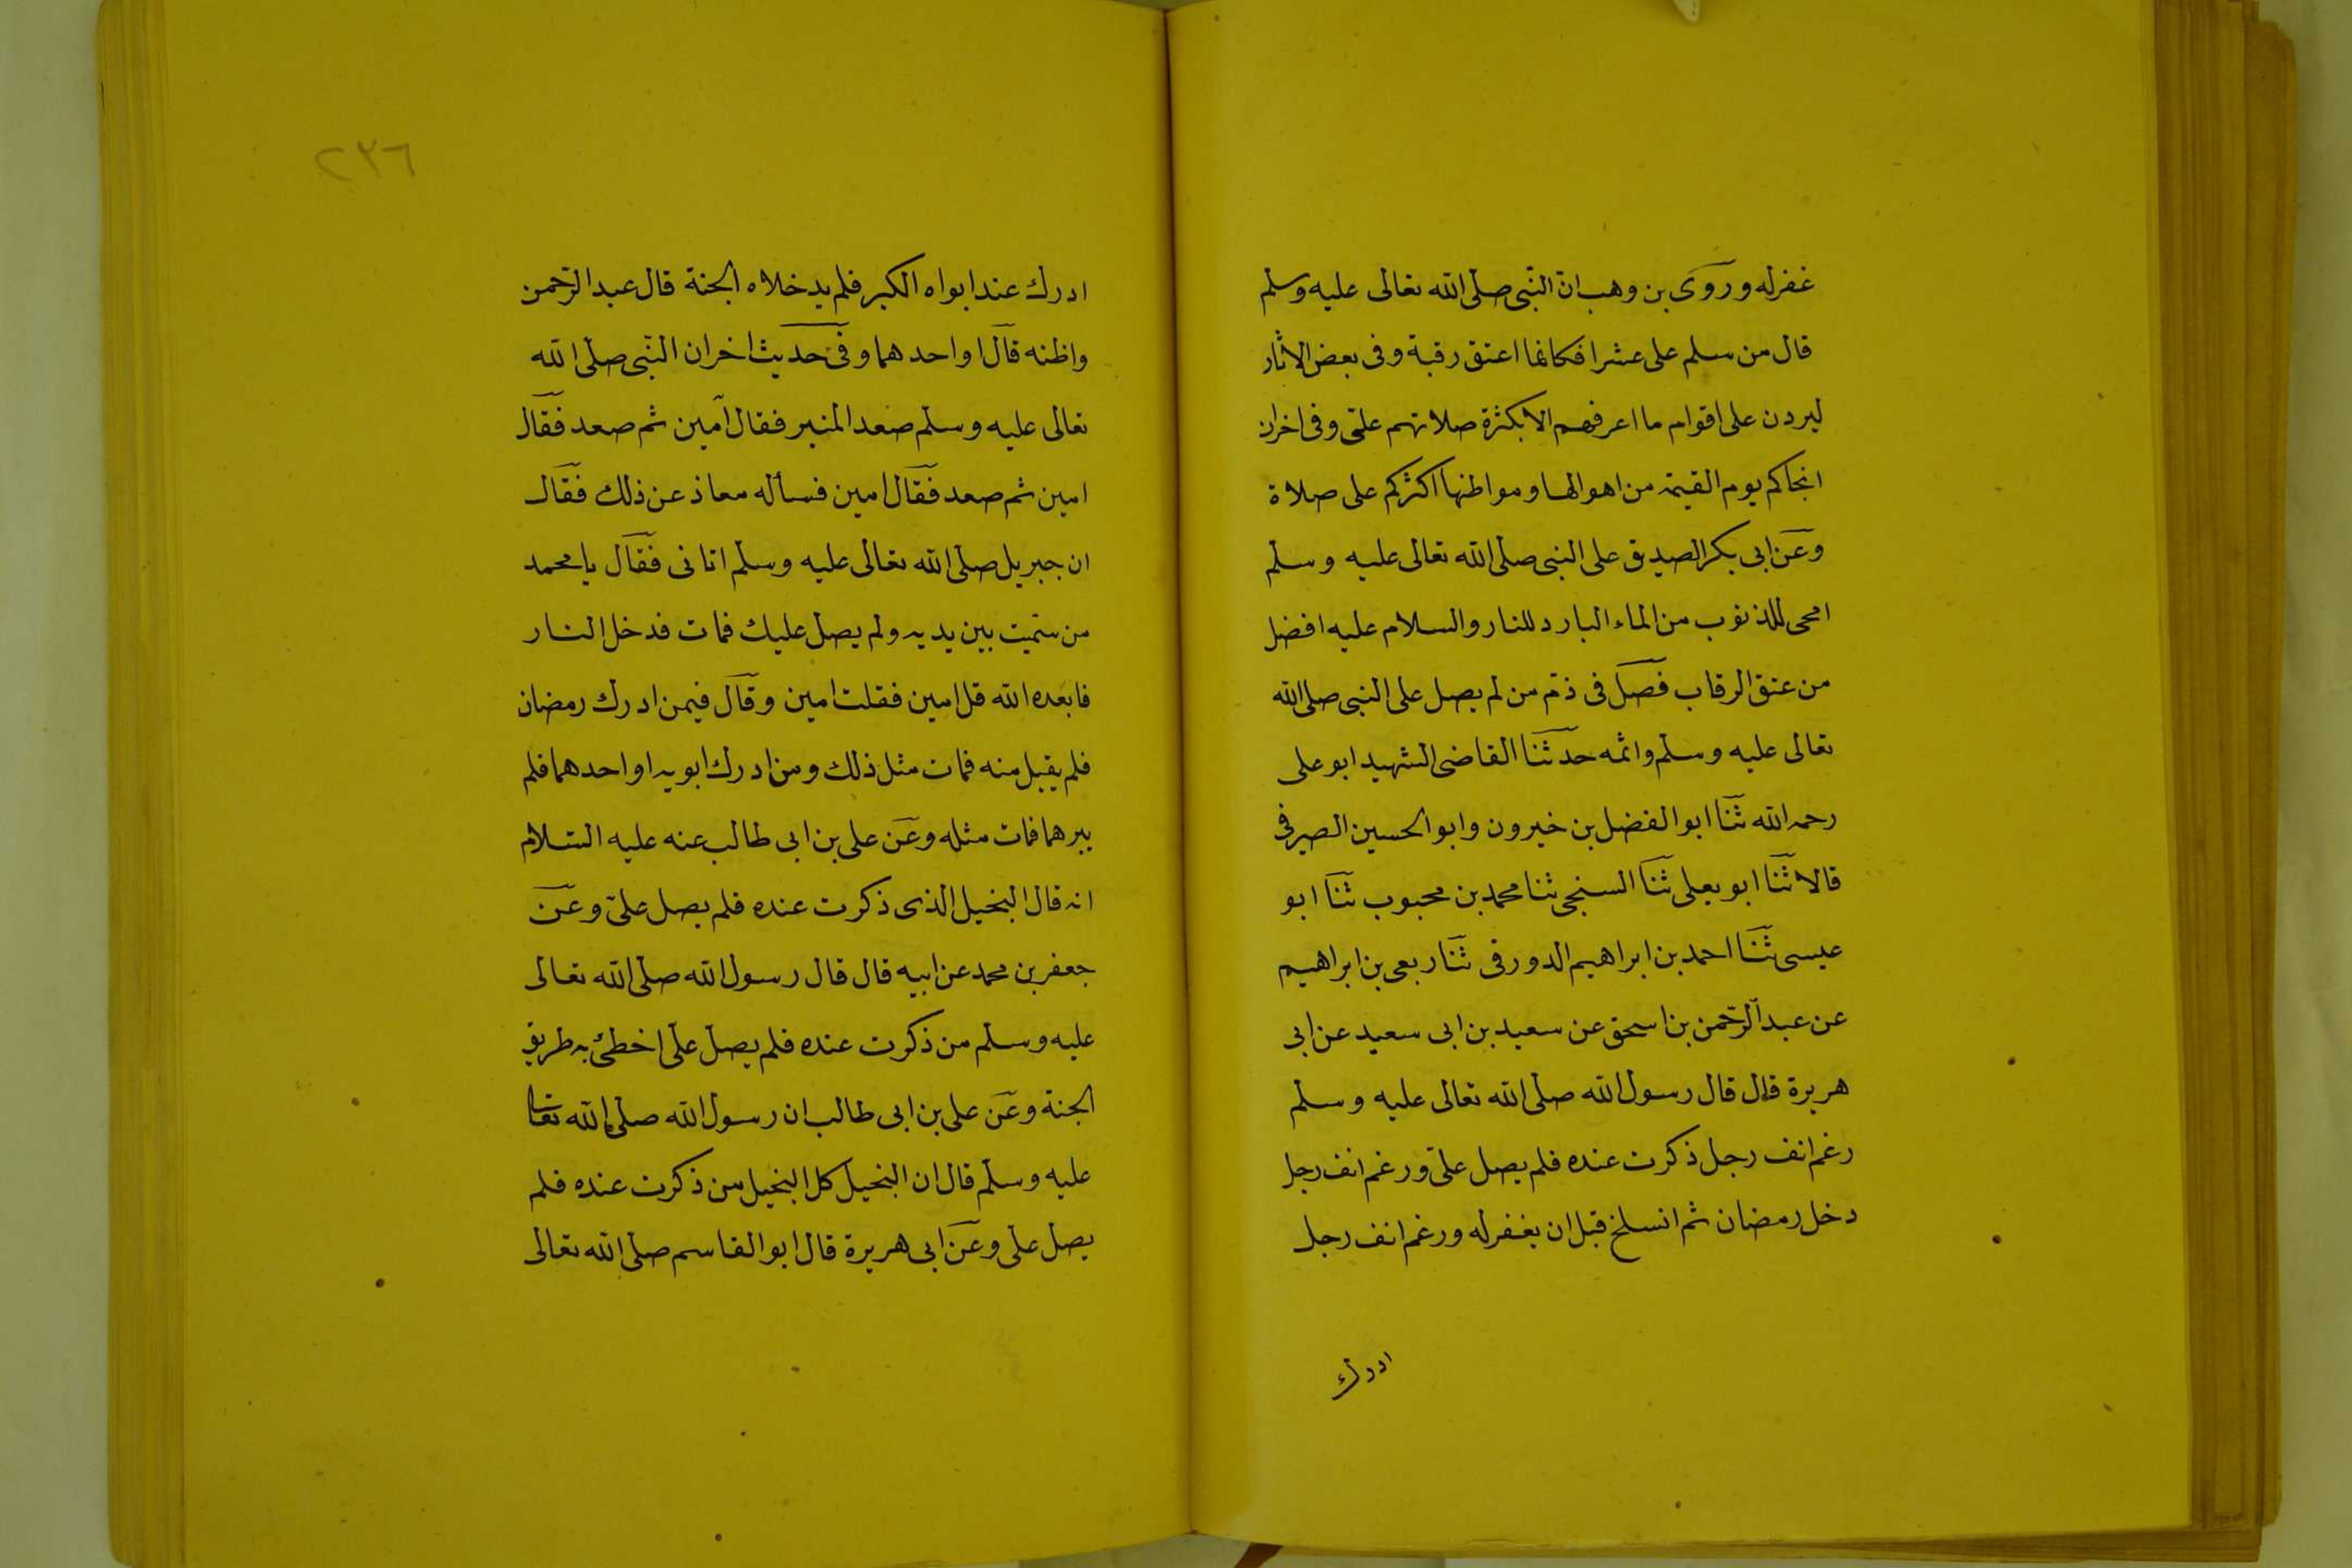 غفرله وروى بن وهب ان النبى صلى الله تعالى عليه وسلم
قال من سلم على عشرا فكانما اعتق رقبة وفى بعض الاثار
ليردن على اقوام ما اعرفهم الا بكثرة صلاتهم علىّ وفى اخران
انجاكم يوم القيمة من اهوالها ومواطنها اكثركم على صلاة
وعن ابى بكر الصديق على النبى صلى الله تعالى عليه وسلم
امحى للذنوب من الماء البارد للنار والسلام عليه افضل
من عتق الرقاب فصل فى ذم من لم يصل على النبى صلى الله
تعالى عليه وسلم واثمه حدثنا القاضى الشهيد ابو على
رحمه الله ثنا ابو الفضل بن خيرون وابو الحسين الصيرفى
قالا ثنا ابو يعلى ثنا السنجى ثنا محمد بن محبوب ثنا ابو
عيسى ثنا احمد بن ابراهيم الدورقى ثنا ربعى بن ابراهيم
عن عبد الرحمن بن اسحق عن سعيد بن ابى سعيد عن ابى
هريرة قال قال رسول الله صلى الله تعالى عليه وسلم
رغم انف رجل ذكرت عنده فلم يصل علىّ ورغم انف رجل
دخل رمضان ثم انسلخ قبل ان يغفرله ورغم انف رجل
ادرك
٢٣٦
ادرك عند ابواه الكبر فلم يدخلاه الجنة قال عبد الرحمن
واظنه قال او احدهما وفى حديث اخران النبى صلى الله
تعالى عليه وسلم صعد المنبر فقال آمين ثم صعد فقال
امين ثم صعد فقال امين فسأله معاذ عن ذلك فقال
ان جبريل صلى الله تعالى عليه وسلم اتانى فقال يا محمد
من سميت بين يديه ولم يصل عليك فمات فدخل النار
فابعده الله قل امين فقلت امين وقال فيمن ادرك رمضان
فلم يقبل منه فمات مثل ذلك ومن ادرك ابويه او احدهما فلم
يبرهما فمات مثله وعن على بن ابى طالب عنه عليه السلام
انه قال البخيل الذى ذكرت عنده فلم يصل علىّ وعن
جعفر بن محمد عن ابيه قال قال رسول الله صلى الله تعالى
عليه وسلم من ذكرت عنده فلم يصل على اخطئ به طريق
الجنة وعن على بن ابى طالب ان رسول الله صلى الله تعا
عليه وسلم قال ان البخيل كل البخيل من ذكرت عنده فلم
يصل على وعن ابى هريرة قال ابو القاسم صلى الله تعالى